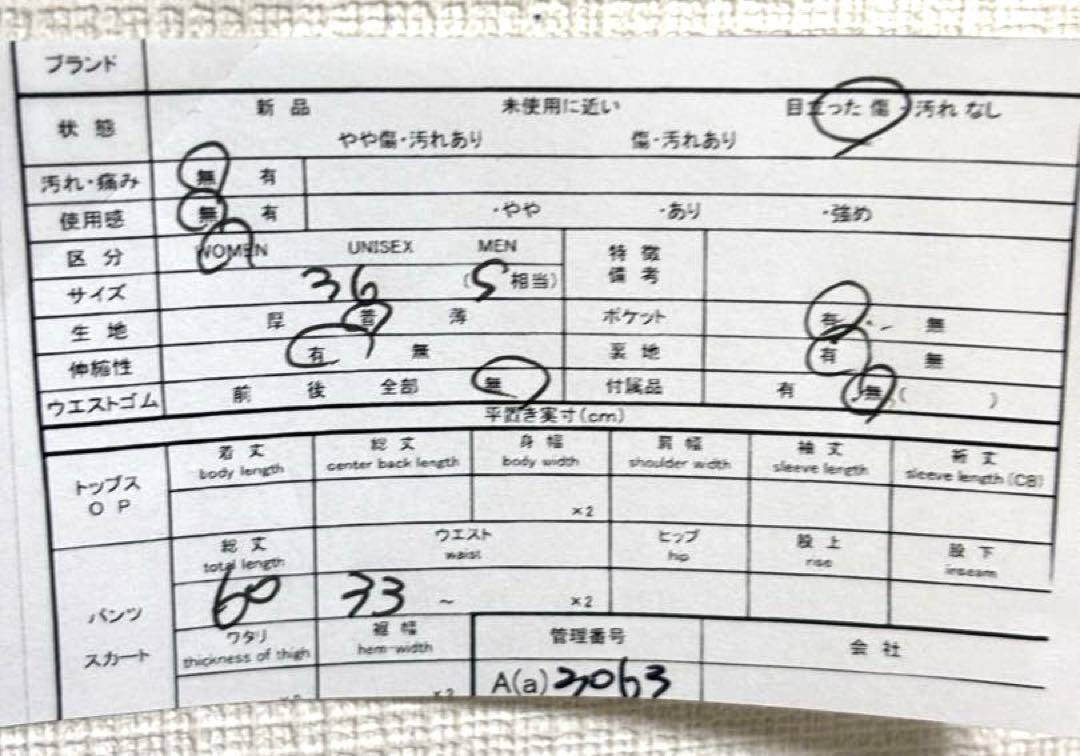 ブランド
状態 新品 未使用に近い 目立った傷・汚れなし
やや傷・汚れあり 傷・汚れあり
汚れ・痛み 無 有
使用感 無 有 ・やや ・あり ・強め
区分 WOMEN UNISEX MEN 特徴
備考
サイズ 36 (S相当)
生地 厚 普 薄 ポケット 有 ・ 無
伸縮性 有 無 裏地 有 無
ウエストゴム 前 後 全部 無 付属品 有 無 ( )
平置き実寸(cm)
トップス
OP
着丈 総丈 身幅 肩幅 袖丈 裄丈
body length center back length body width shoulder width sleeve length sleeve length (CB)
×2
パンツ
スカート
総丈 ウエスト ヒップ 股上 股下
total length waist hip rise inseam
60 33 ~ ×2
ワタリ 裾幅 管理番号 会社
thickness of thigh hem-width
×2 ×2 A(a)3063